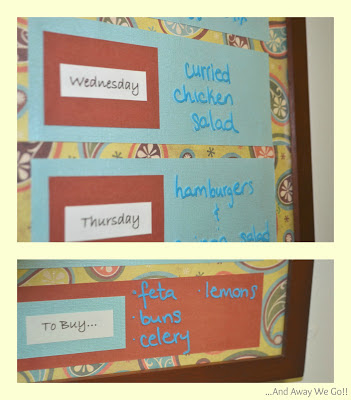 Wednesday
curried
chicken
salad
Thursday
hamburgers
&
salad
To Buy...
· feta · lemons
· buns
· celery
...And Away We Go!!